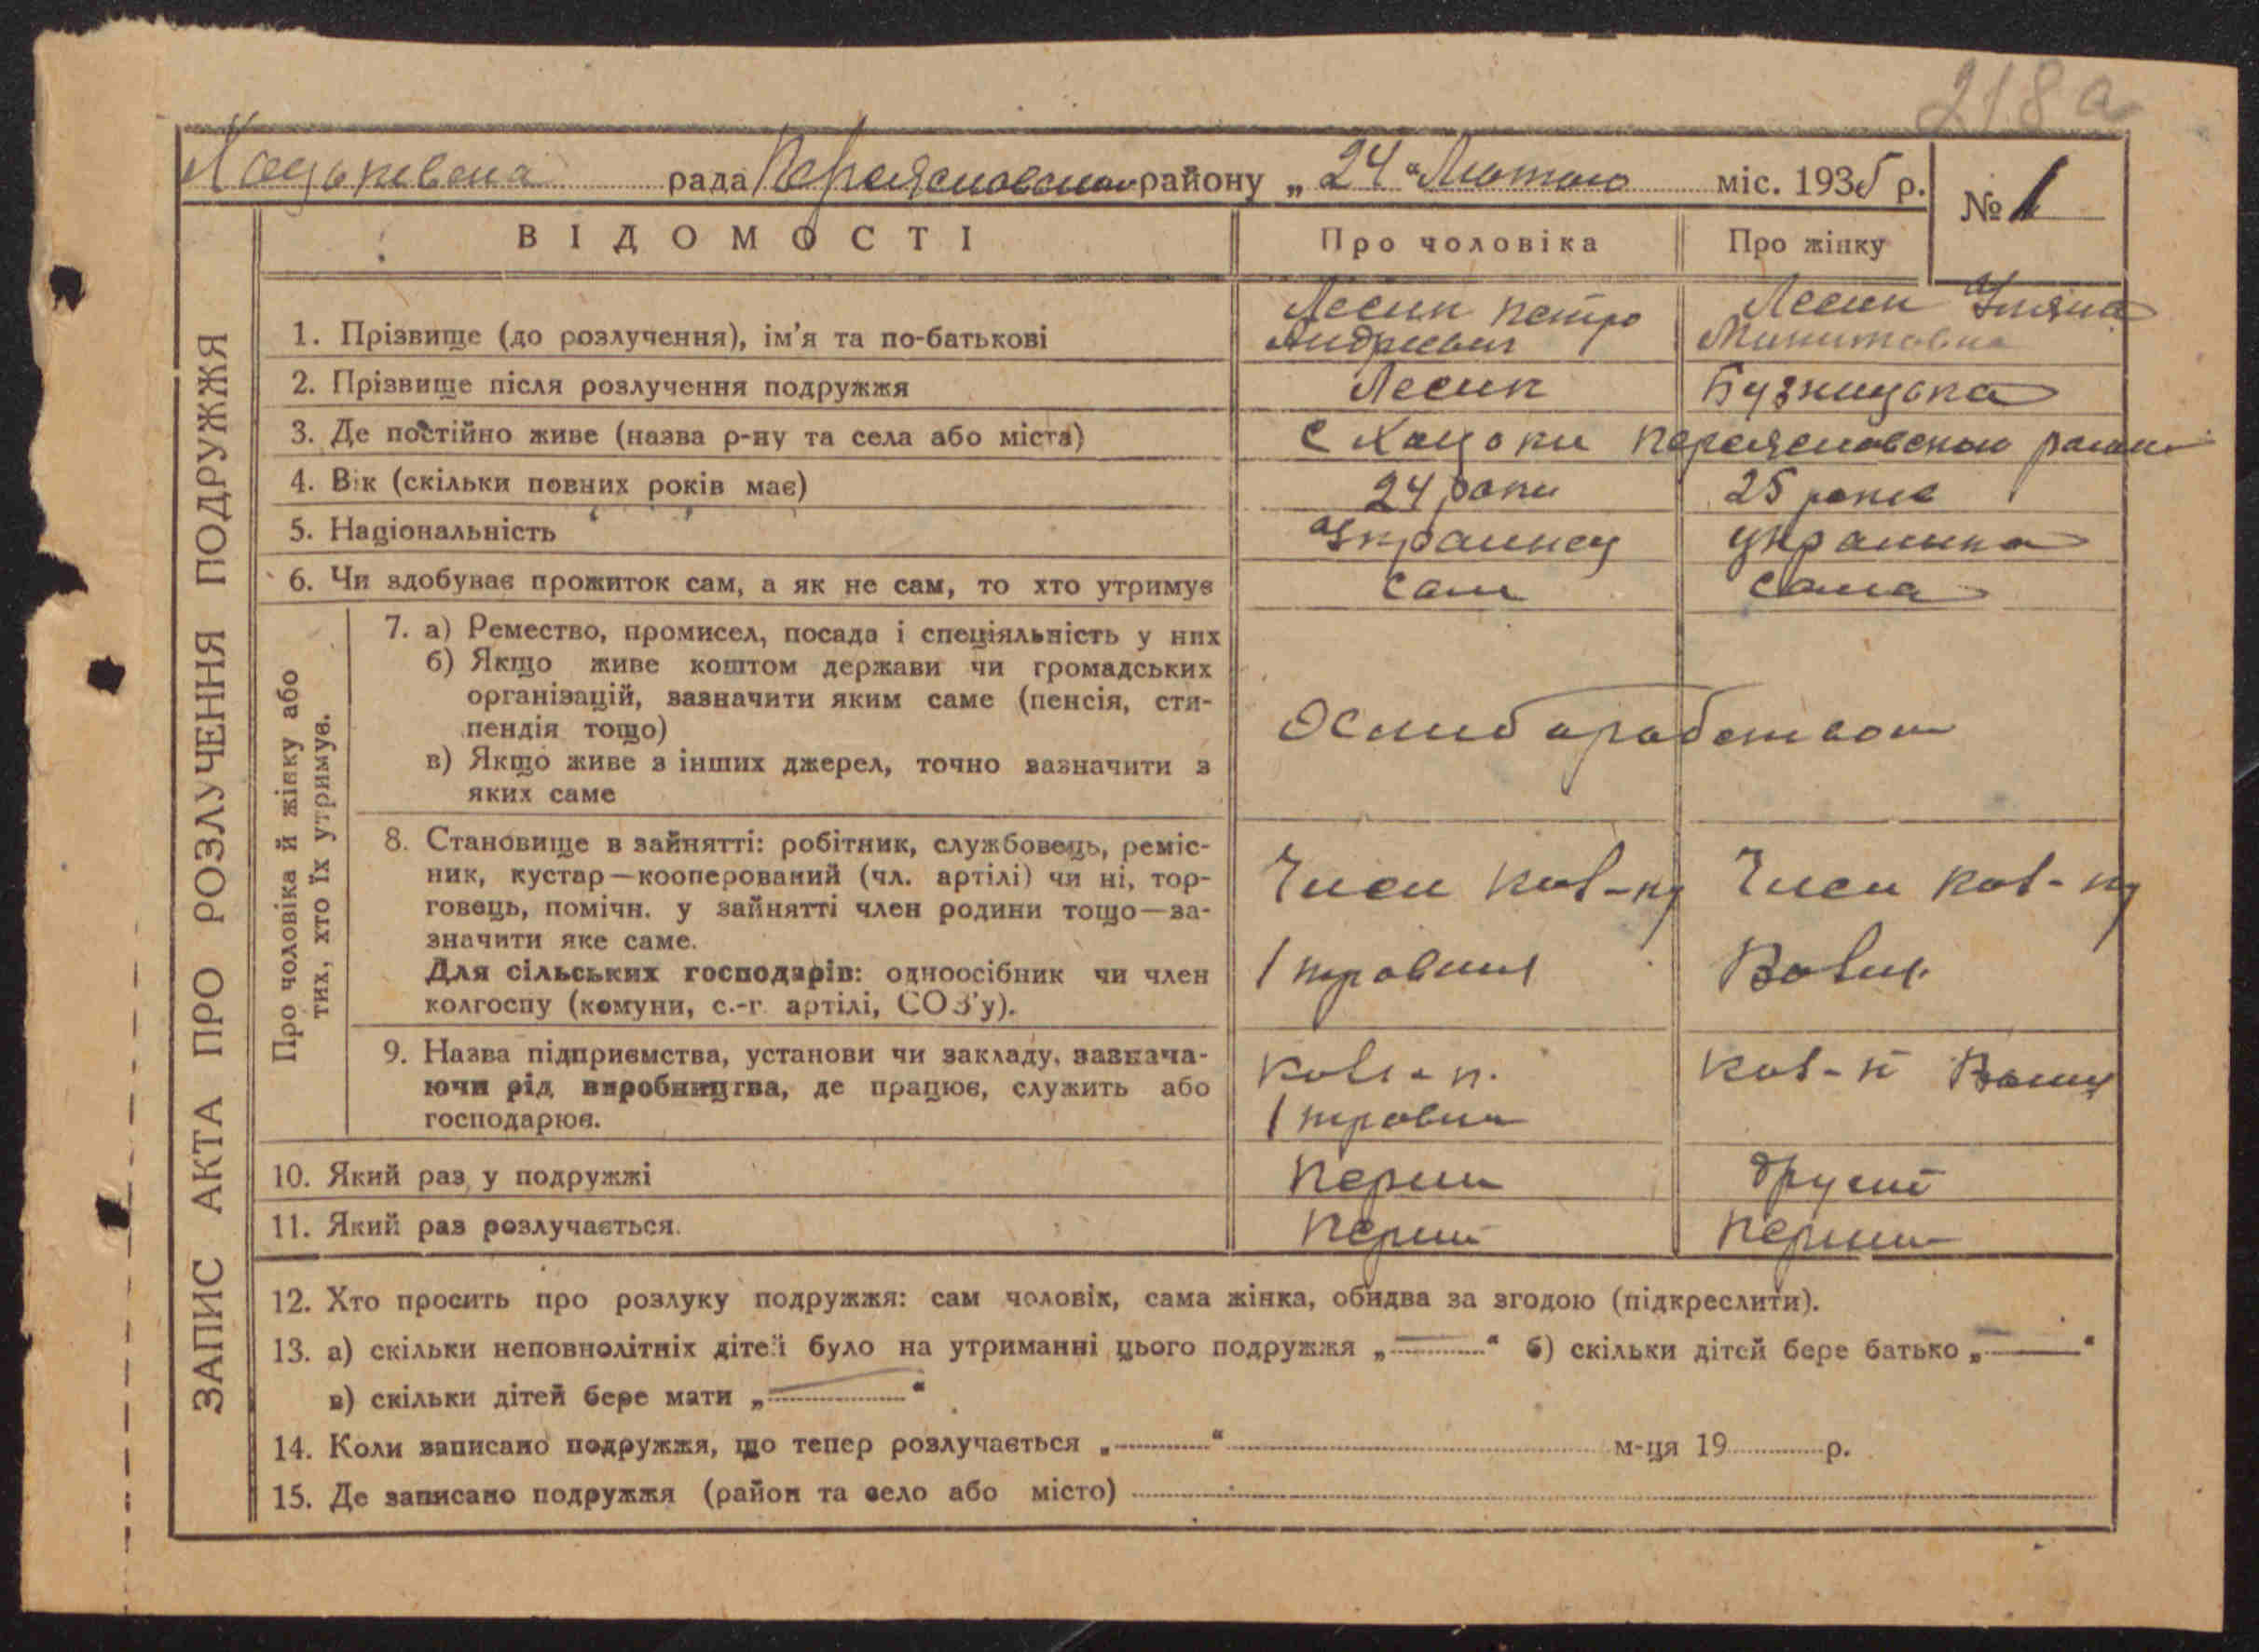 218 а
Хоцьківська рада Переяславського району „ 24 “ Лютого міс. 1935 р.
№ 1
ВІДОМОСТІ
Про чоловіка
Про жінку
ЗАПИС АКТА ПРО РОЗЛУЧЕННЯ ПОДРУЖЖЯ
1. Прізвище (до розлучення), ім'я та по-батькові
Лесик Петро
Андреевич
Лесик Уляна
Микитовна
2. Прізвище після розлучення подружжя
Лесик
Бузницька
3. Де постійно живе (назва р-ну та села або міста)
с Хоцьки Переяславського району
4. Вік (скільки повних років має)
24 роки
25 років
5. Національність
Украинец
украинка
6. Чи здобуває прожиток сам, а як не сам, то хто утримує
сам
сама
Про чоловіка й жінку або
тих, хто їх утримує.
7. а) Ремество, промисел, посада і спеціяльність у них
б) Якщо живе коштом держави чи громадських
організацій, зазначити яким саме (пенсія, сти-
пендія тощо)
в) Якщо живе з інших джерел, точно зазначити з
яких саме
8. Становище в зайнятті: робітник, службовець, реміс-
ник, кустар—кооперований (чл. артілі) чи ні, тор-
говець, помічн. у зайнятті член родини тощо—за-
значити яке саме.
Для сільських господарів: одноосібник чи член
колгоспу (комуни, с.-г. артілі, СОЗ'у).
Член
1 травня
Член
9. Назва підприємства, установи чи закладу, зазнача-
ючи рід виробництва, де працює, служить або
господарює.
1 травня
10. Який раз у подружжі
Перши
другий
11. Який раз розлучається.
Перший
Перший
12. Хто просить про розлуку подружжя: сам чоловік, сама жінка, обидва за згодою (підкреслити).
13. а) скільки неповнолітніх дітей було на утриманні цього подружжя „—“ б) скільки дітей бере батько „—“
в) скільки дітей бере мати „—“
14. Коли записано подружжя, що тепер розлучається „ “ м-ця 19 р.
15. Де записано подружжя (район та село або місто)